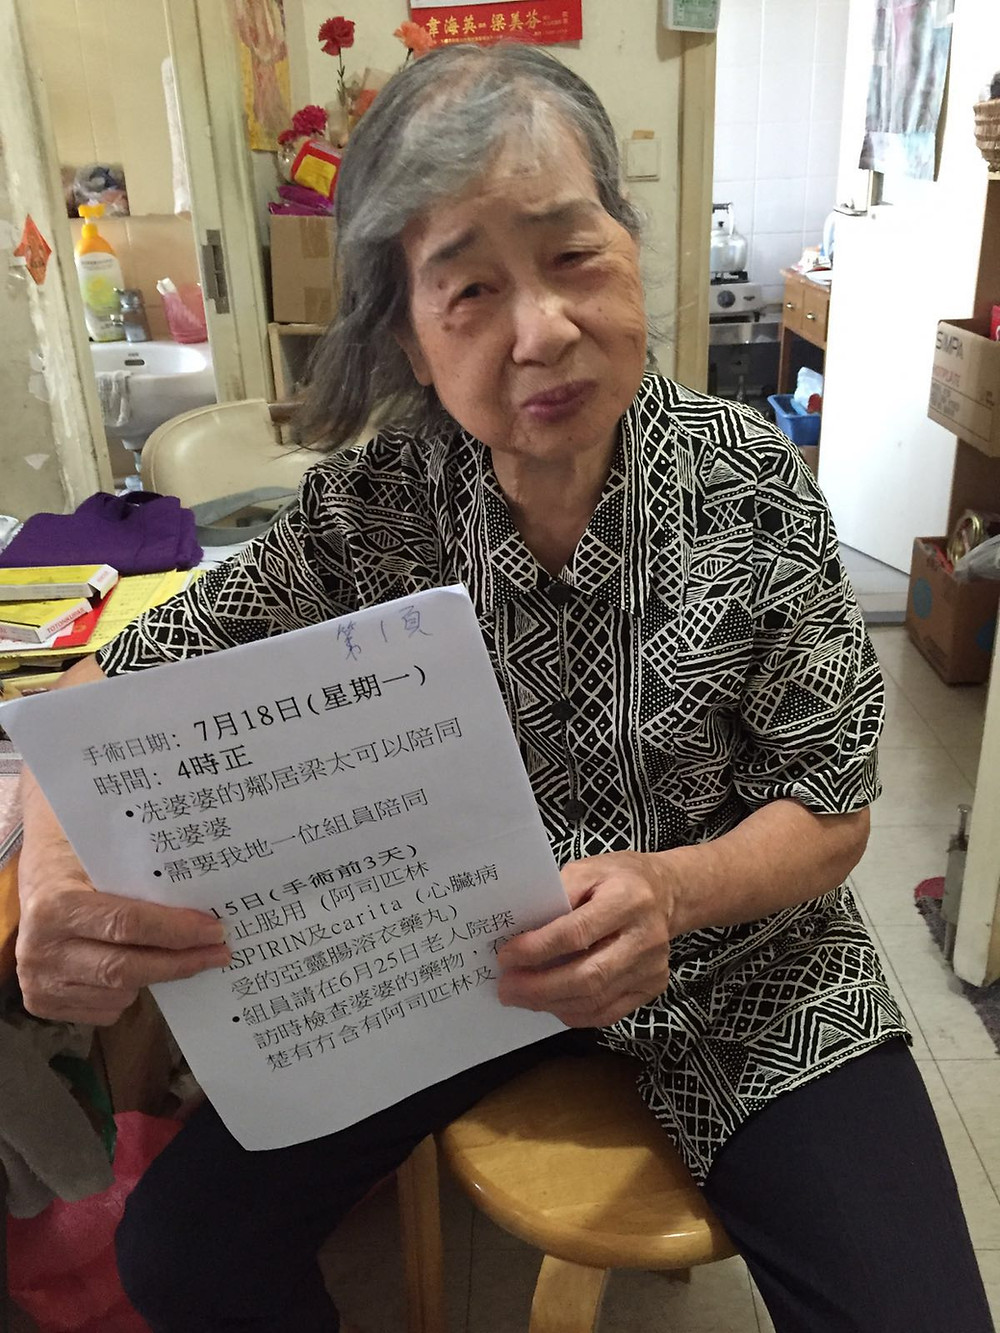 韋海英 梁美芬
第1頁
手術日期：7月18日(星期一)
時間：4時正
•冼婆婆的鄰居梁太可以陪同
冼婆婆
•需要我地一位組員陪同
15日(手術前3天)
止服用 (阿司匹林
ASPIRIN及carita (心臟病
受的亞靈腸溶衣藥丸)
•組員請在6月25日老人院探
訪時檢查婆婆的藥物，看
楚有冇含有阿司匹林及
SIMPA